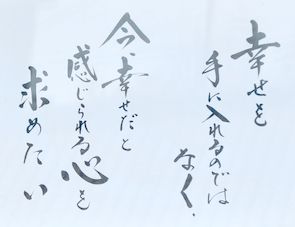 幸せを
手に入れるのでは
なく、
今、幸せだと
感じられる心を
求めたい